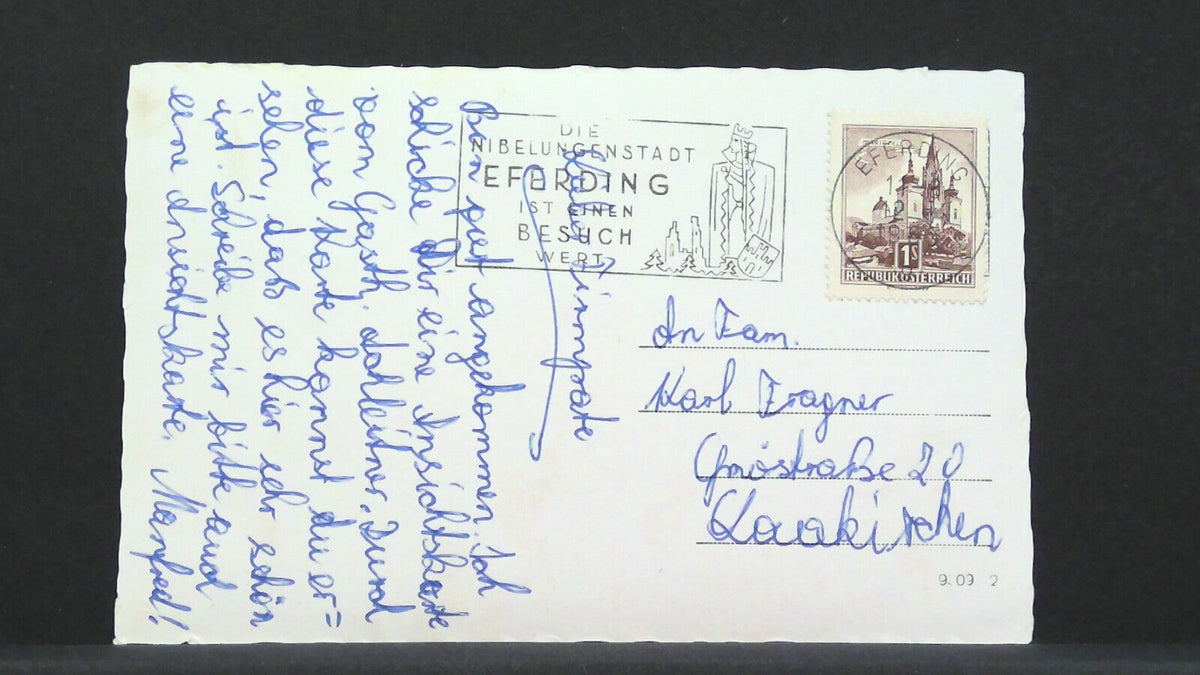 DIE
NIBELUNGENSTADT
EFERDING
IST EINEN
BESUCH
WERT
EFERDING
1S
REPUBLIK ÖSTERREICH
Bin gut angekommen. Ich
schicke dir eine Ansichtskarte
vom Gasth. dahleitner. Durch
diese Karte kannst du er=
sehen, dass es hier sehr schön
ist. Schreibe mir bitte auch
eine Ansichtskarte. Manfred!
An Fam.
Karl Fragner
20
Laakirchen
9.09 2